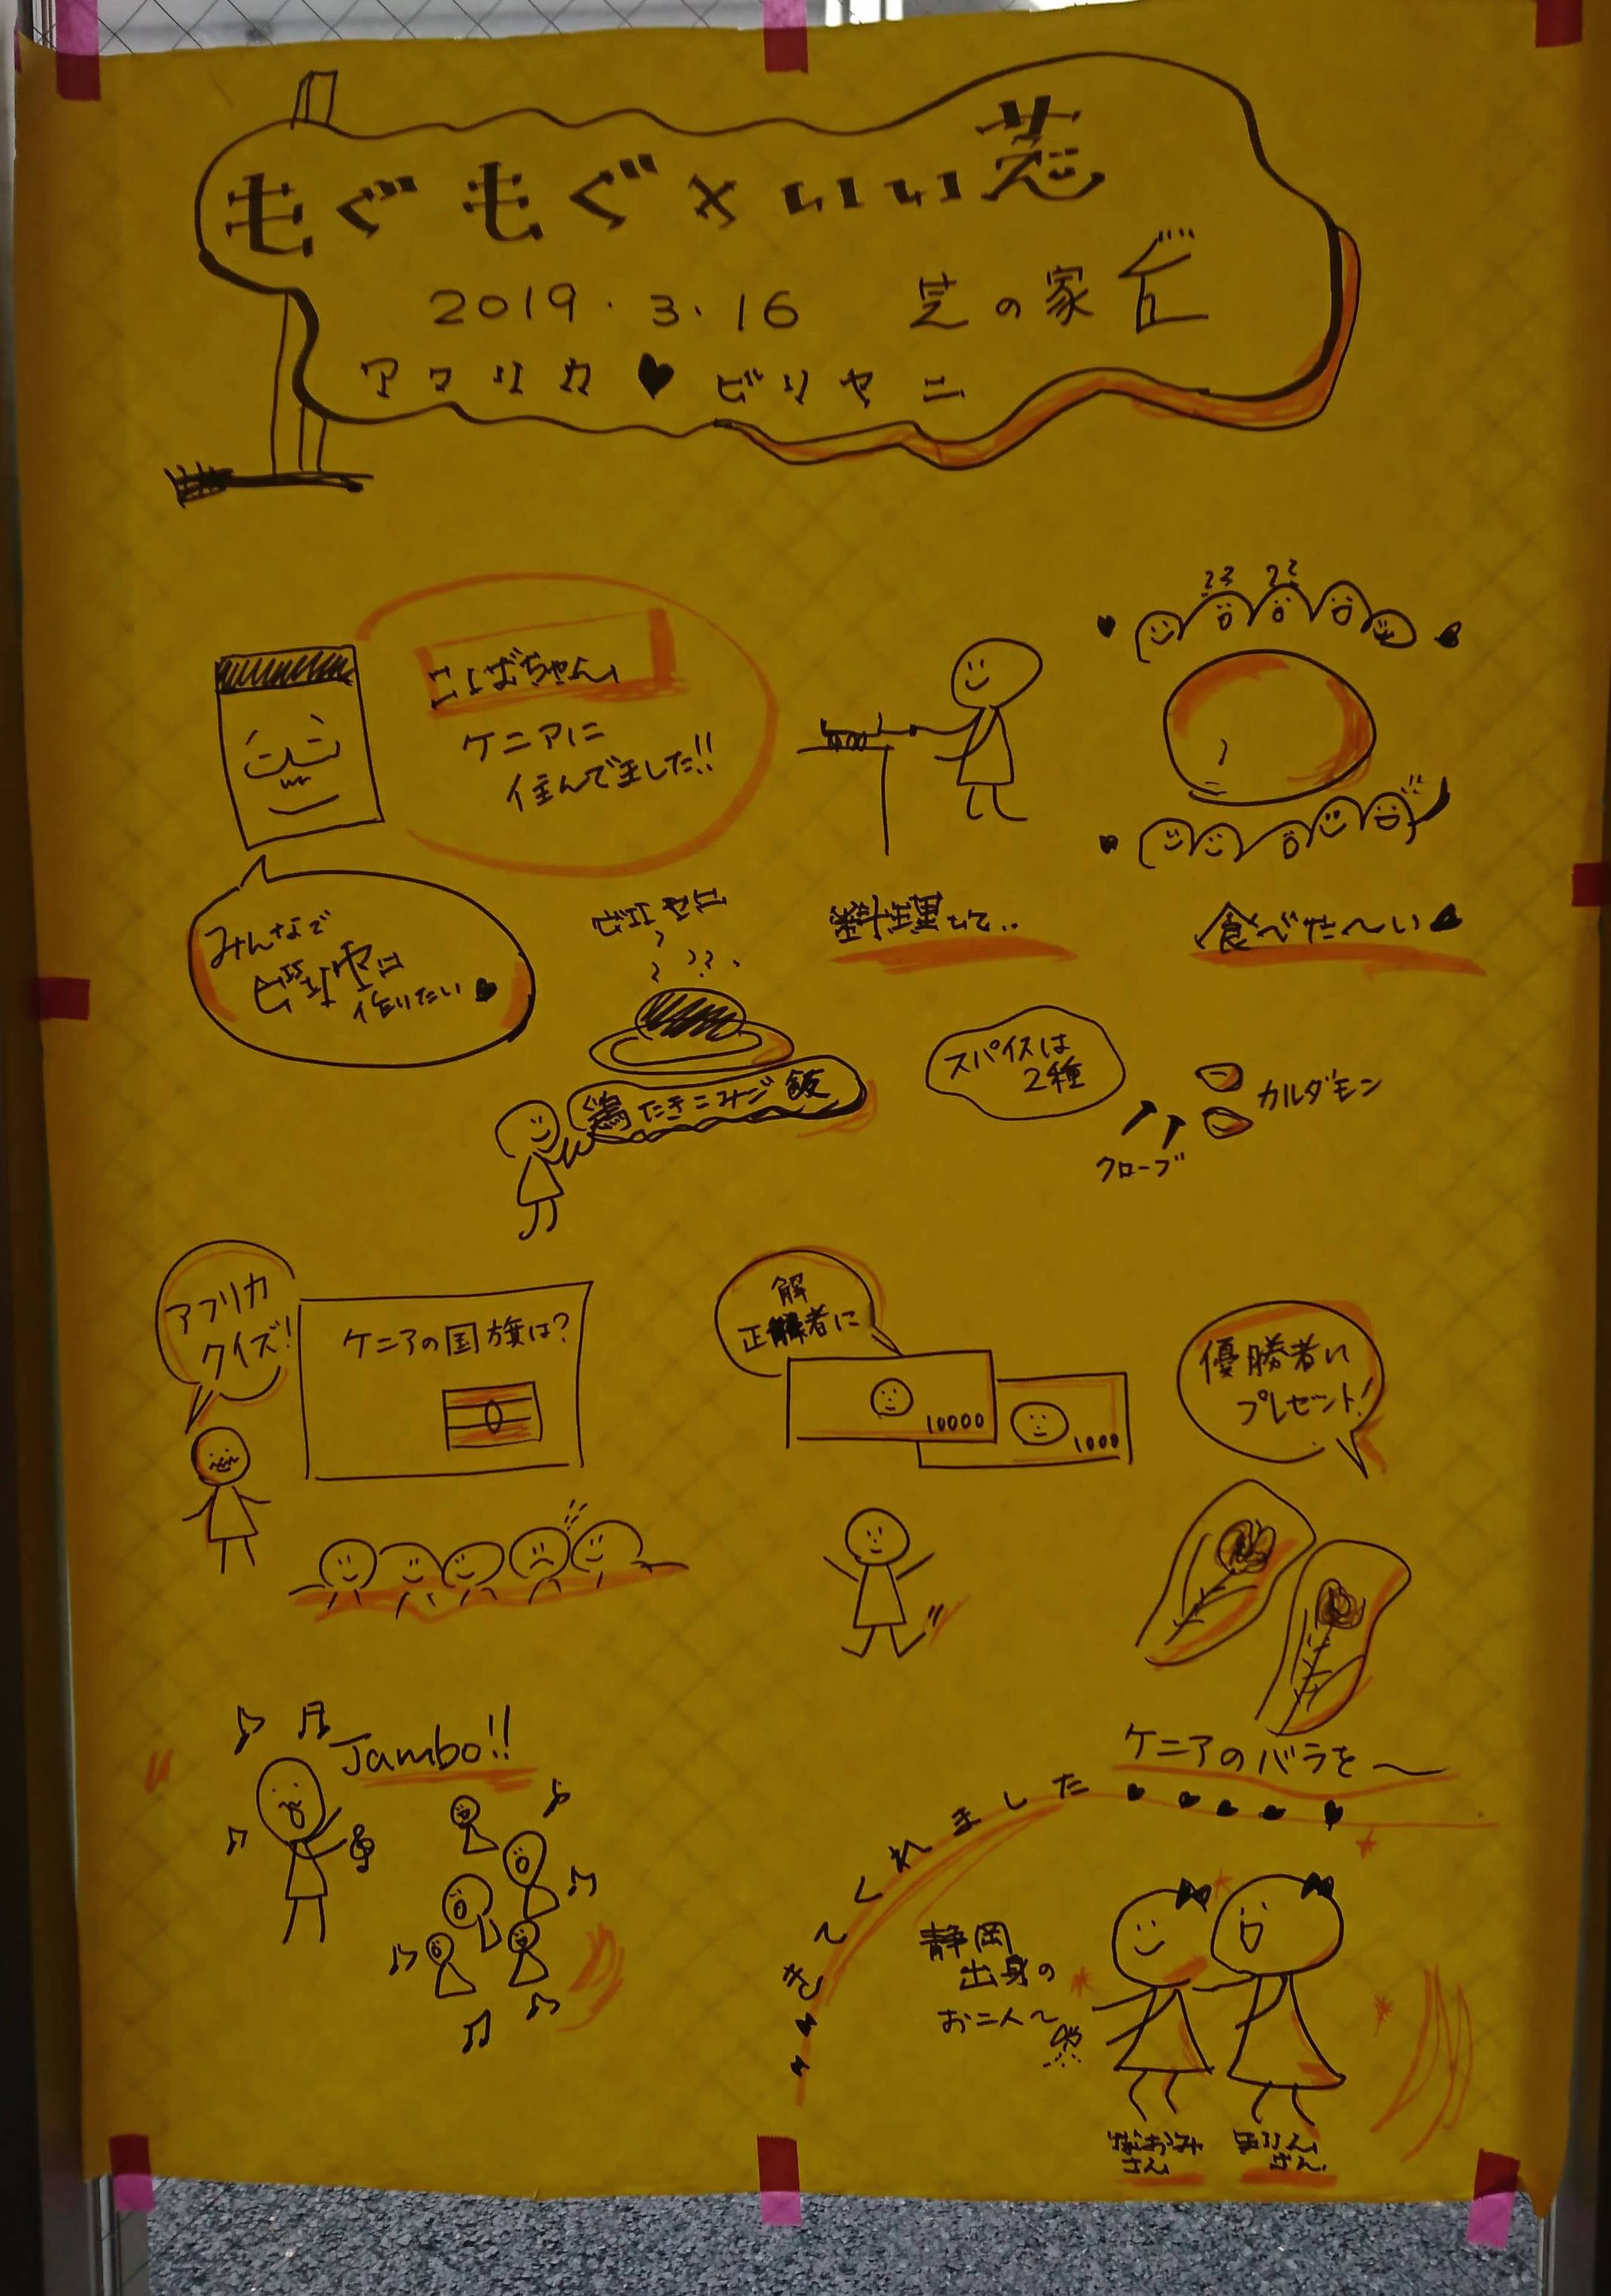 もぐもぐ×いい芝
2019.3.16 芝の家
アフリカ♥ビリヤニ
こばちゃん
ケニアに
住んでました!!
みんなで
ビリヤニ
作りたい♥
ビリヤニ
鶏たきこみご飯
料理して..
食べた〜い♥
スパイスは
2種
カルダモン
クローブ
アフリカ
クイズ!
ケニアの国旗は?
解
正解者に
10000
1000
優勝者に
プレゼント!
ケニアのバラを〜
Jambo!!
きてくれました
静岡
出身の
お二人〜
なおみ
さん
さん